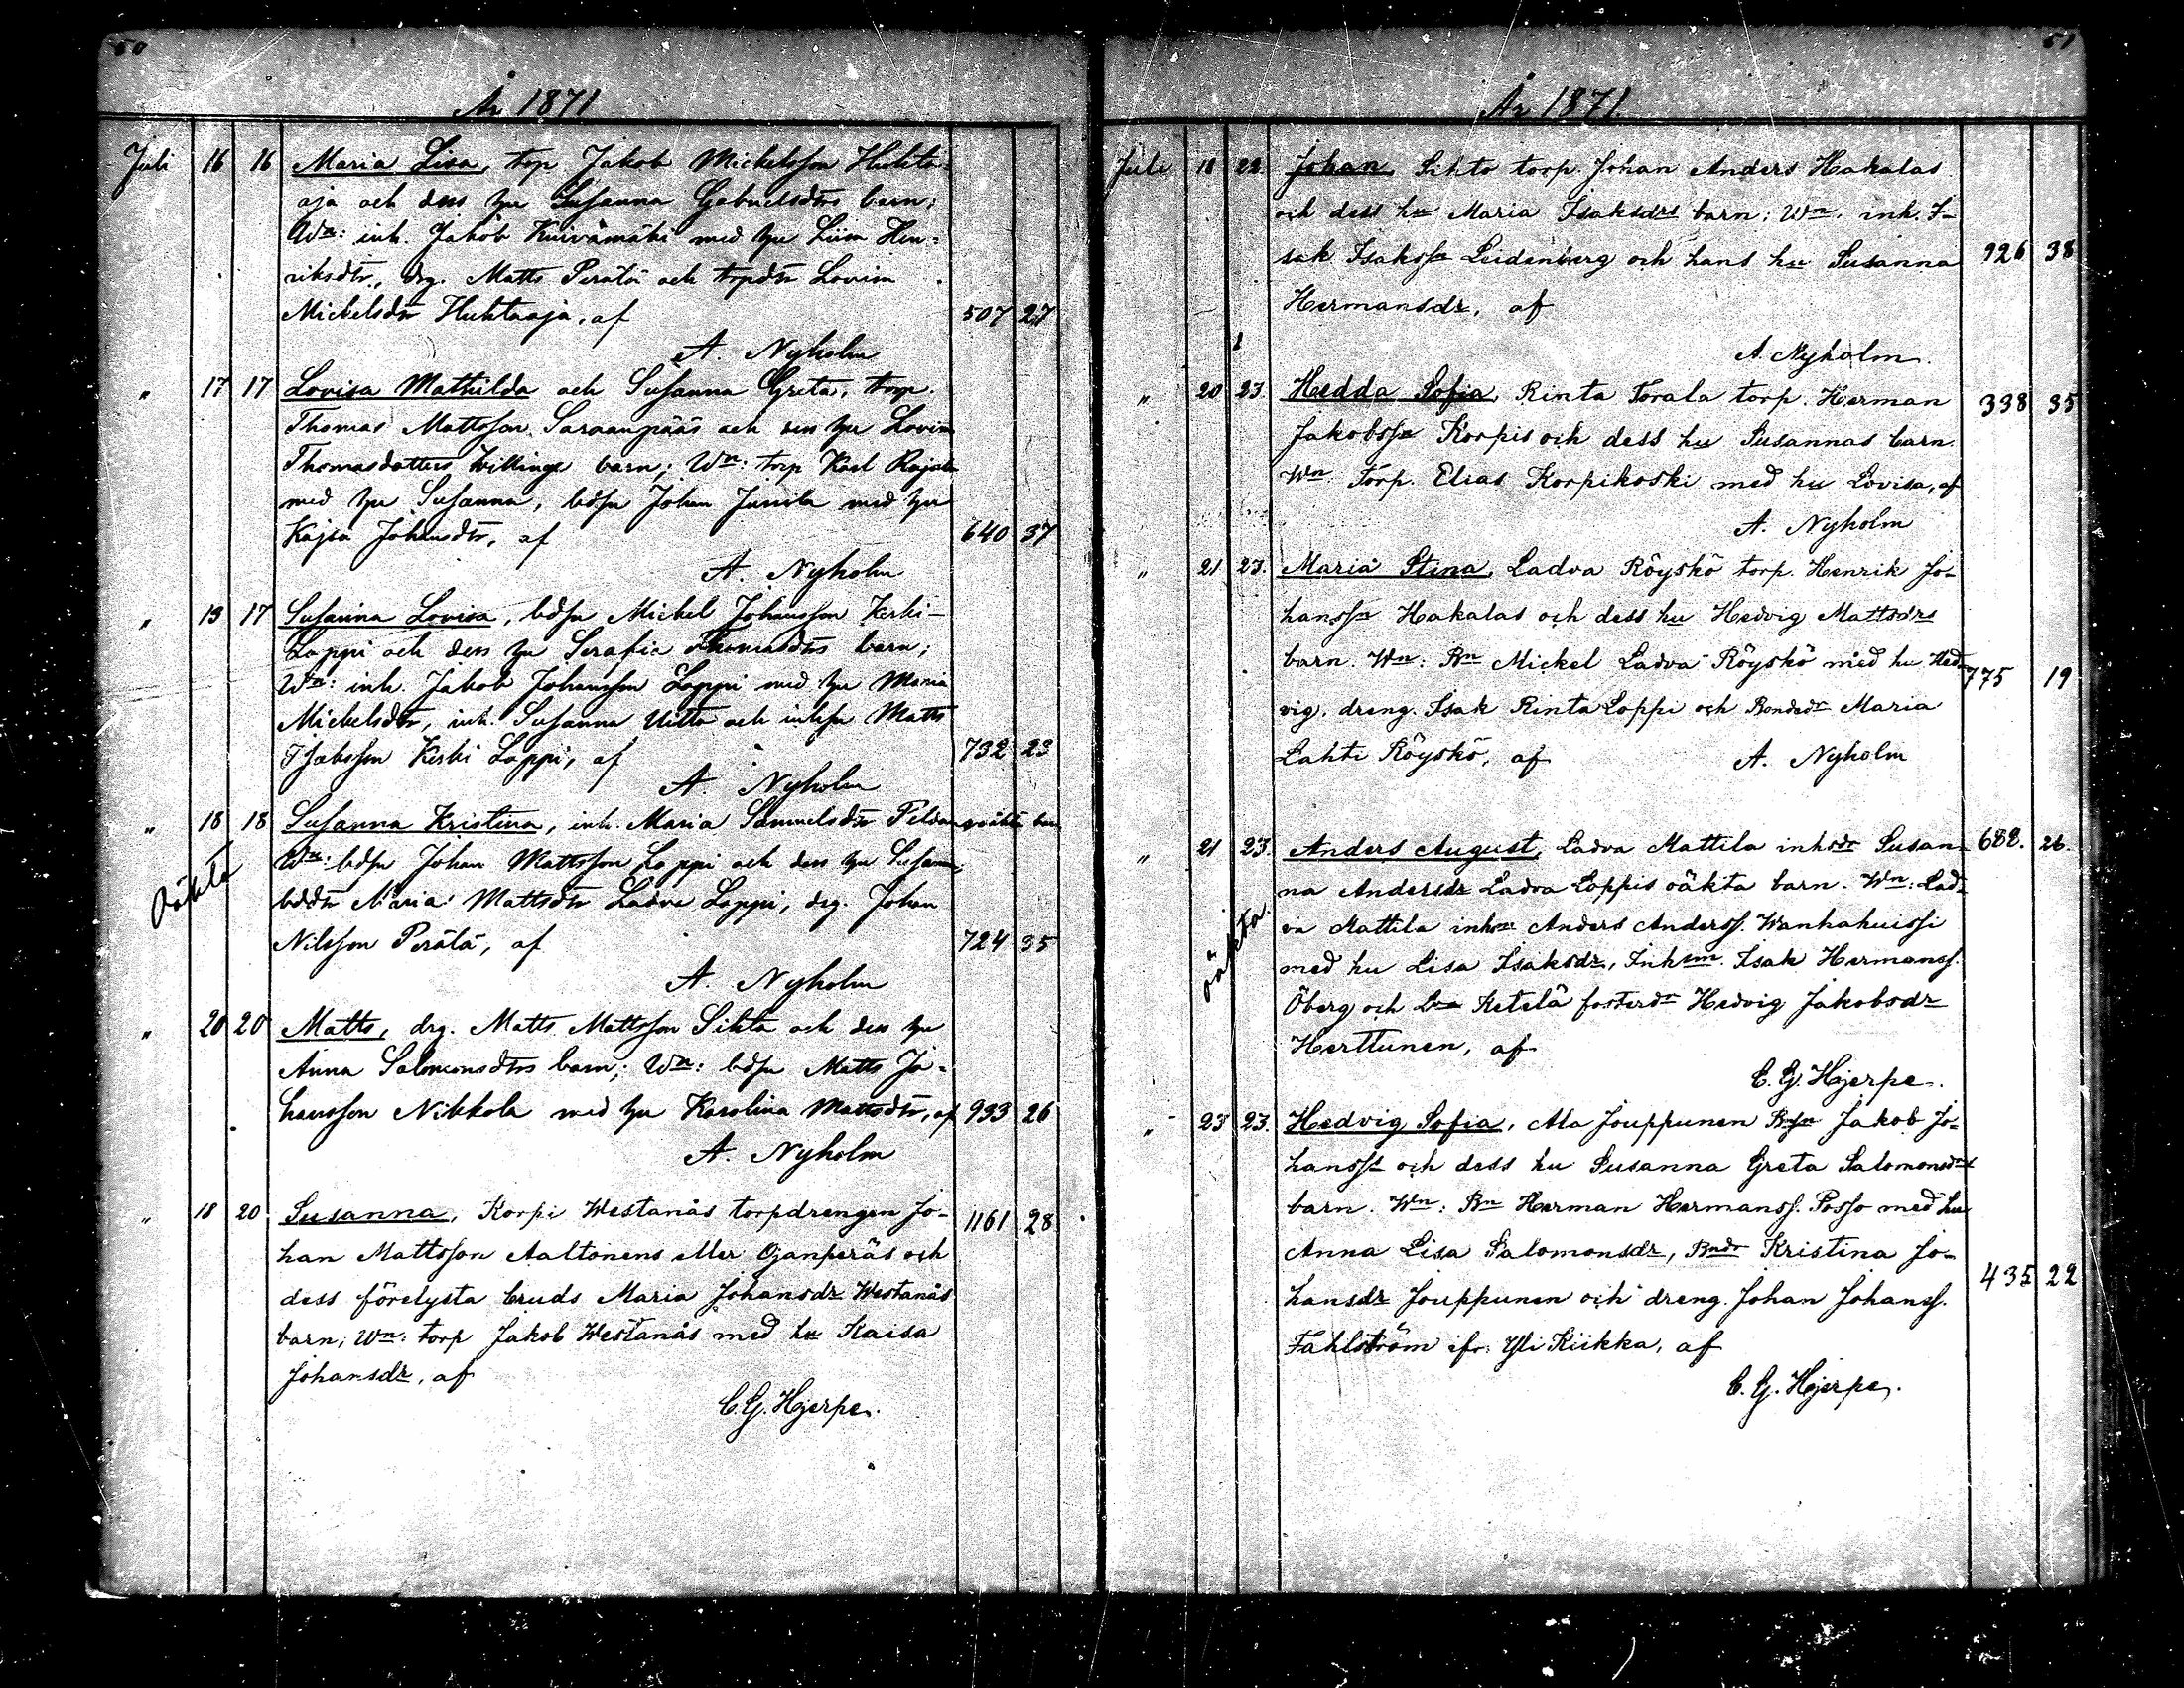 50
År 1871
Juli 16 16 Maria Lisa, torp Jakob Mickelsson Huhta-
aja och dess hu Susanna Gabrielsdtrs barn;
Wn: inh. Jakob Kuivamäki med hu Liisa Hen-
riksdtr, drg. Matts Perälä och torpdtr Lovisa
Mickelsdtr Huhtaaja, af 507 27
A. Nyholm
" 17 17 Lovisa Mathilda och Susanna Greta, torp.
Thomas Mattsson Saraanpääs och dess hu Lovisa
Thomasdotters tvillinge barn; Wn: torp Karl Rajala
med hu Susanna, bdsn Johan Jussila med hu
Kajsa Johansdtr, af 640 37
A. Nyholm
" 13 17 Susanna Lovisa, bdsn Mickel Johansson Kerki-
Lappi och dess hu Serafia Thomasdtrs barn;
Wn: inh. Jakob Johansson Lappi med hu Maria
Mickelsdtr, inh. Susanna Uitto och inhsn Matts
Jakobsson Kerki Lappi, af 732 23
A. Nyholm
" 18 18 Susanna Kristina, inh. Maria Samuelsdtr oäkta barn
Wn: bdsn Johan Mattsson Loppi och dess hu Susanna,
bddtr Maria Mattsdtr Ladva Loppi, drg. Johan
Nilsson Perälä, af 724 35
Oäkta
A. Nyholm
" 20 20 Matts, drg. Matts Mattsson Sihto och dess hu
Anna Salomonsdtrs barn; Wn: bdsn Matts Jo-
hansson Nikkola med hu Karolina Mattsdtr, af 933 26
A. Nyholm
" 18 20 Susanna, Korpi Westanås torpdrengen Jo- 1161 28
han Mattsson Aaltonens eller Ojanperäs och
dess förelysta bruds Maria Johansdr Westanås
barn; Wn: torp Jakob Westanås med hu Kaisa
Johansdr, af
C. G. Hjerpe.
51
År 1871.
Juli 18 22. Johan, Sihto torp. Johan Anders Hakalas
och dess hu Maria Isaksdrs barn: Wn. inh. I-
sak Isakssn Leidenberg och hans hu Susanna 926 38
Hermansdr, af
A. Nyholm.
" 20 23. Hedda Sofia, Rinta Torala torp. Herman 338 35
Jakobssn Korpis och dess hu Susannas barn.
Wn. Torp. Elias Korpikoski med hu Lovisa, af
A. Nyholm
" 21 23. Maria Stina, Ladva Röyskö torp. Henrik Jo-
hanssn Hakalas och dess hu Hedvig Mattsdrs
barn. Wn: Bn Mickel Ladva Röyskö med hu Hed- 775 19
vig, dreng. Isak Rinta Loppi och Bondedr Maria
Lahti Röyskö, af A. Nyholm
" 21 23. Anders August, Ladva Mattila inhsdr Susan- 688. 26.
na Andersdr Ladva Loppis oäkta barn. Wn: Lad-
va Mattila inhsn Anders Anderss. Wanhakuissi
med hu Lisa Isaksdr, Inhsm. Isak Hermanss.
Öberg och Ketelä fosterdr Hedvig Jakobsdr
Herttunen, af
oäkta.
C. G. Hjerpe.
" 23 23. Hedvig Sofia, Ala Jouppunen Bsn Jakob Jo-
hanssn och dess hu Susanna Greta Salomonsdrs
barn. Wn: Bn Herman Hermanss. Posso med hu
Anna Lisa Salomonsdr, Bndr Kristina Jo-
hansdr Jouppunen och dreng. Johan Johanss. 435 22
Fahlström ifr. Yli Kiikka, af
C. G. Hjerpe.